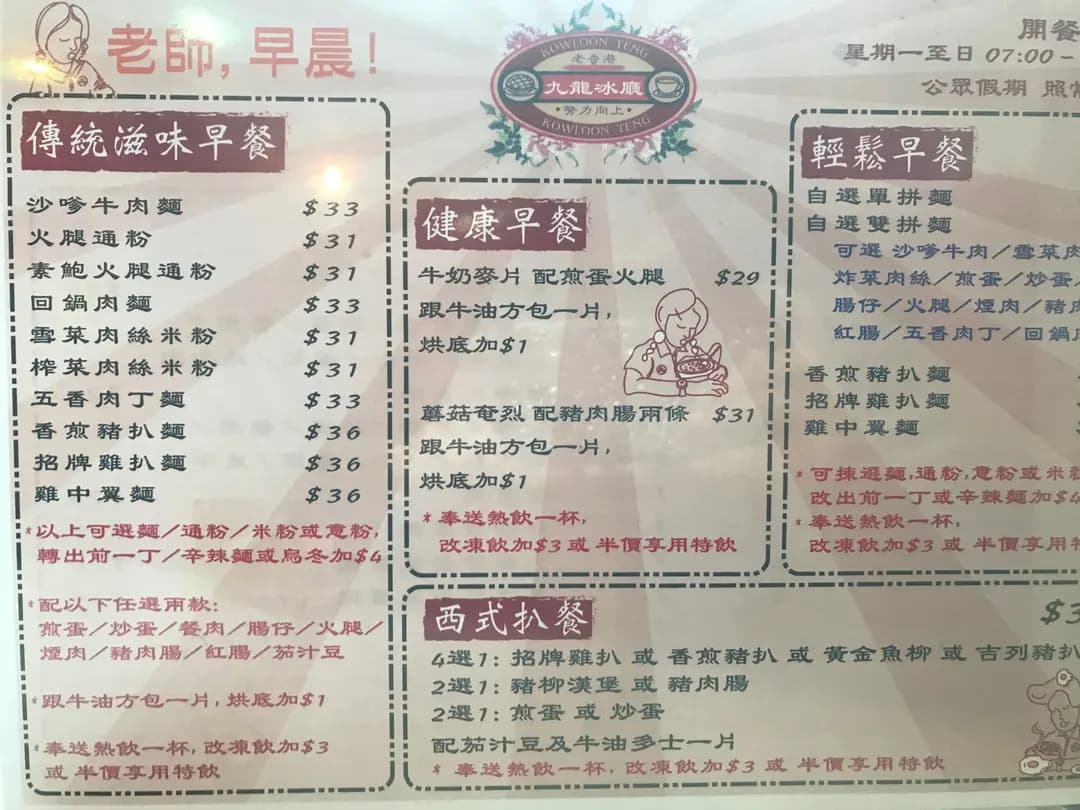 老師,早晨!
KOWLOON TENG
老香港
九龍冰廳
•努力向上•
KOWLOON TENG
開餐
星期一至日 07:00 -
公眾假期 照常
傳統滋味早餐
沙嗲牛肉麵 $33
火腿通粉 $31
素鮑火腿通粉 $31
回鍋肉麵 $33
雪菜肉絲米粉 $31
榨菜肉絲米粉 $31
五香肉丁麵 $33
香煎豬扒麵 $36
招牌雞扒麵 $36
雞中翼麵 $36
*以上可選麵/通粉/米粉或意粉,
轉出前一丁/辛辣麵或烏冬加$4
*配以下任選兩款:
煎蛋/炒蛋/餐肉/腸仔/火腿/
煙肉/豬肉腸/紅腸/茄汁豆
*跟牛油方包一片, 烘底加$1
*奉送熱飲一杯, 改凍飲加$3
或 半價享用特飲
健康早餐
牛奶麥片 配煎蛋火腿 $29
跟牛油方包一片,
烘底加$1
蘑菇奄烈 配豬肉腸兩條 $31
跟牛油方包一片,
烘底加$1
* 奉送熱飲一杯,
改凍飲加$3 或 半價享用特飲
輕鬆早餐
自選單拼麵
自選雙拼麵
可選 沙嗲牛肉/雪菜肉
炸菜肉絲/煎蛋/炒蛋/
腸仔/火腿/煙肉/豬肉
紅腸/五香肉丁/回鍋
香煎豬扒麵
招牌雞扒麵
雞中翼麵
* 可揀選麵,通粉,意粉或米粉
改出前一丁或辛辣麵加$4
* 奉送熱飲一杯,
改凍飲加$3 或 半價享用特
西式扒餐 $3
4選1: 招牌雞扒 或 香煎豬扒 或 黃金魚柳 或 吉列豬扒
2選1: 豬柳漢堡 或 豬肉腸
2選1: 煎蛋 或 炒蛋
配茄汁豆及牛油多士一片
* 奉送熱飲一杯, 改凍飲加$3 或 半價享用特飲